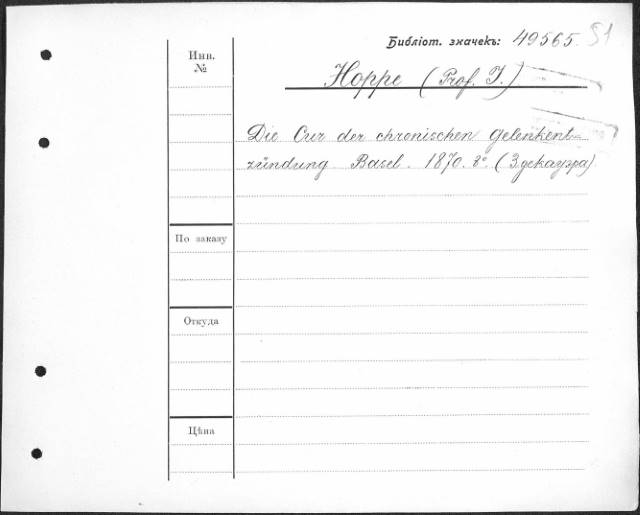 Библіот. значекъ: 49565. 51
Инв.
№
Hoppe (Prof. I.)
Die Cur der chronischen Gelenkent-
zündung. Basel. 1870. 8º. (Здекауэра).
По заказу
Откуда
Цѣна